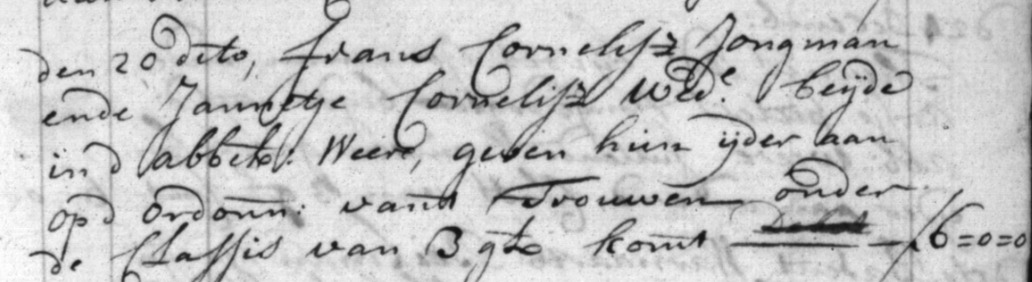 den 20 dito, frans Cornelisz Jongman
ende Jannetje Cornelisz Wed.e beijde
in d abbek: Weere, geven hun ijder aan
op d ordonn: vant Trouwen onder
de Classis van 3 gls komt f 6=0=0